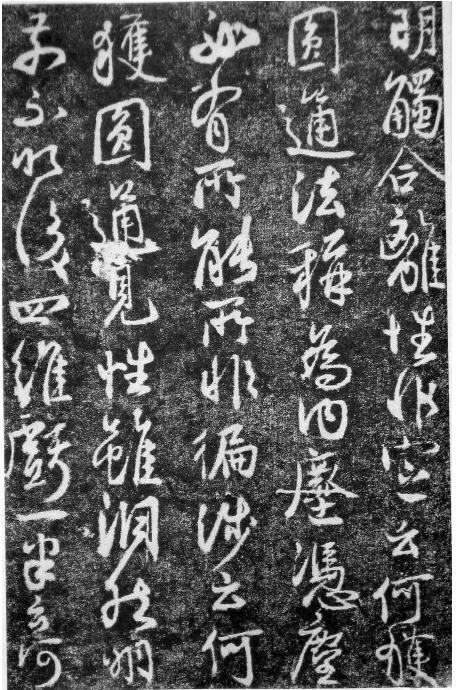 明觸合離性非定云何獲
圓通法稱為內塵憑塵
必有所能所非徧涉云何
獲圓通見性雖洞然明
前不明後四維虧一半云何